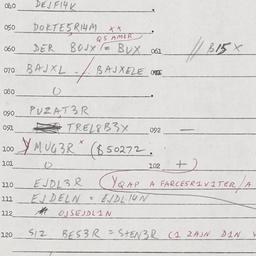 040 DEJFI4K
050 DOKTE5RI4M xx
Q5 AMER
060 DER BOJX = BUX 061 // B15 X
070 BAJXL ./. BAJXELE
080 O
090 PUZAT3R
091 TREL8B3X 092 —
100 MUG3R x ($50272
101 O 102 +
110 EJDL3R (YQAP A FARCESR1V1TER/A
111 EJDELN = EJDL14N
112 OJSEJDL1N
120 S12 BES3R = STEN3R (1 2AJN D1N V